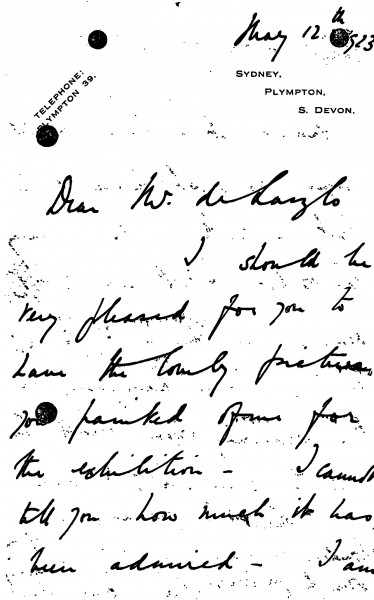 May 12th 1923
TELEPHONE:
PLYMPTON 39.
SYDNEY,
PLYMPTON,
S. DEVON.
Dear Mr. de Laszlo
I should be
very pleased for you to
have the lovely picture
you painted of me for
the exhibition – I cannot
tell you how much it has
been admired – I am